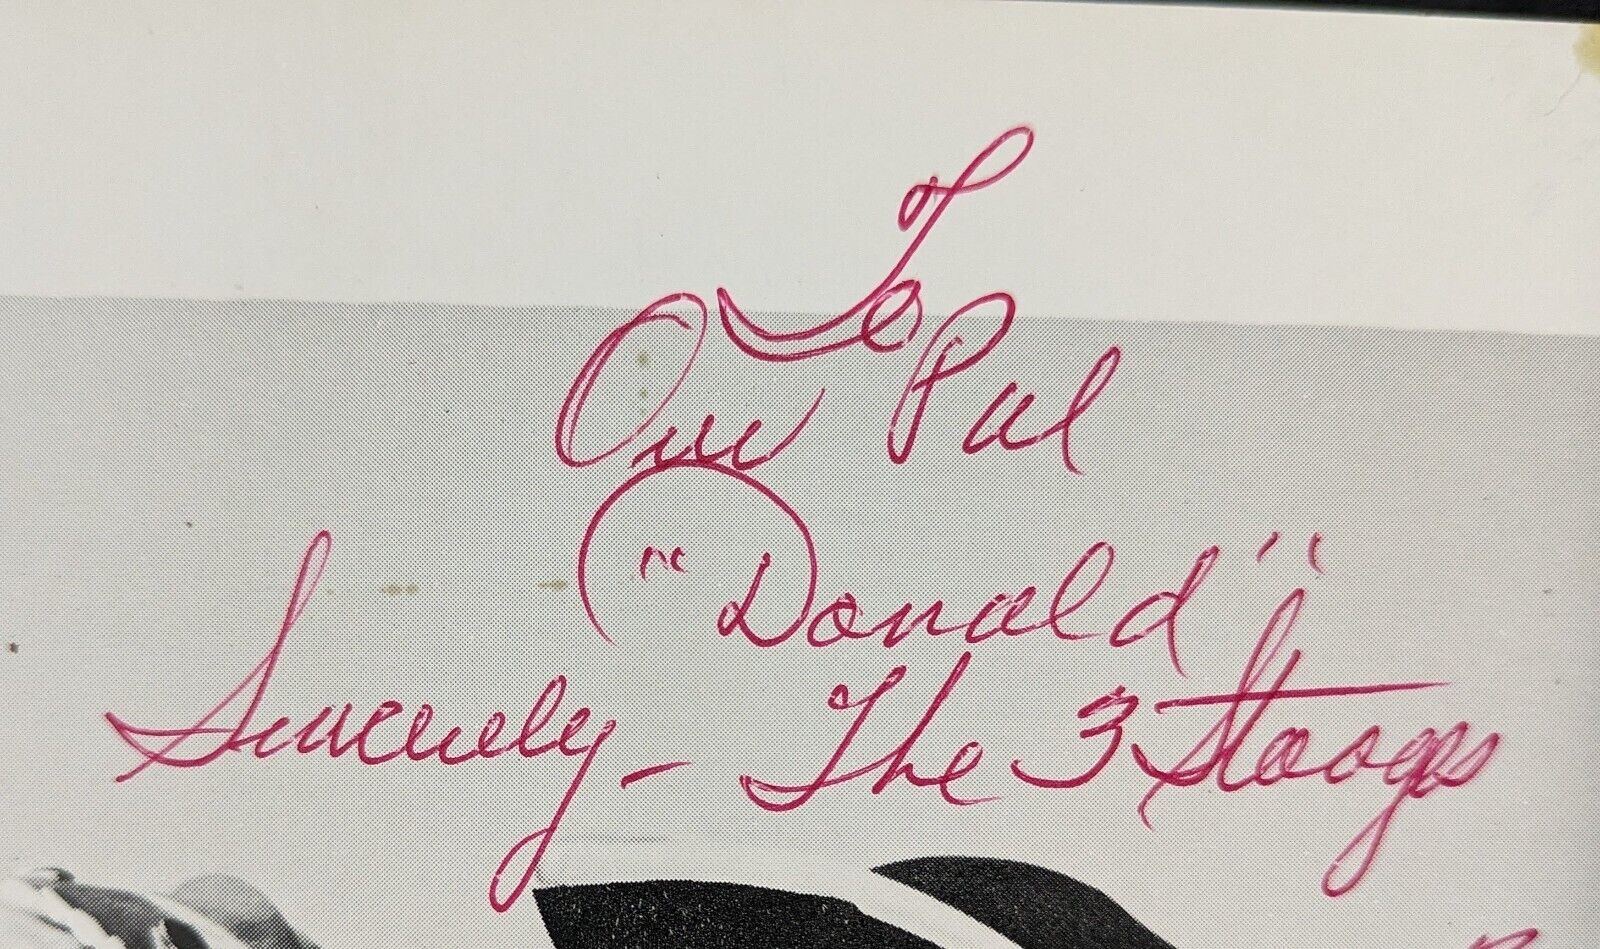 To
Our Pal
"Donald"
Sincerely - The 3 Stooges